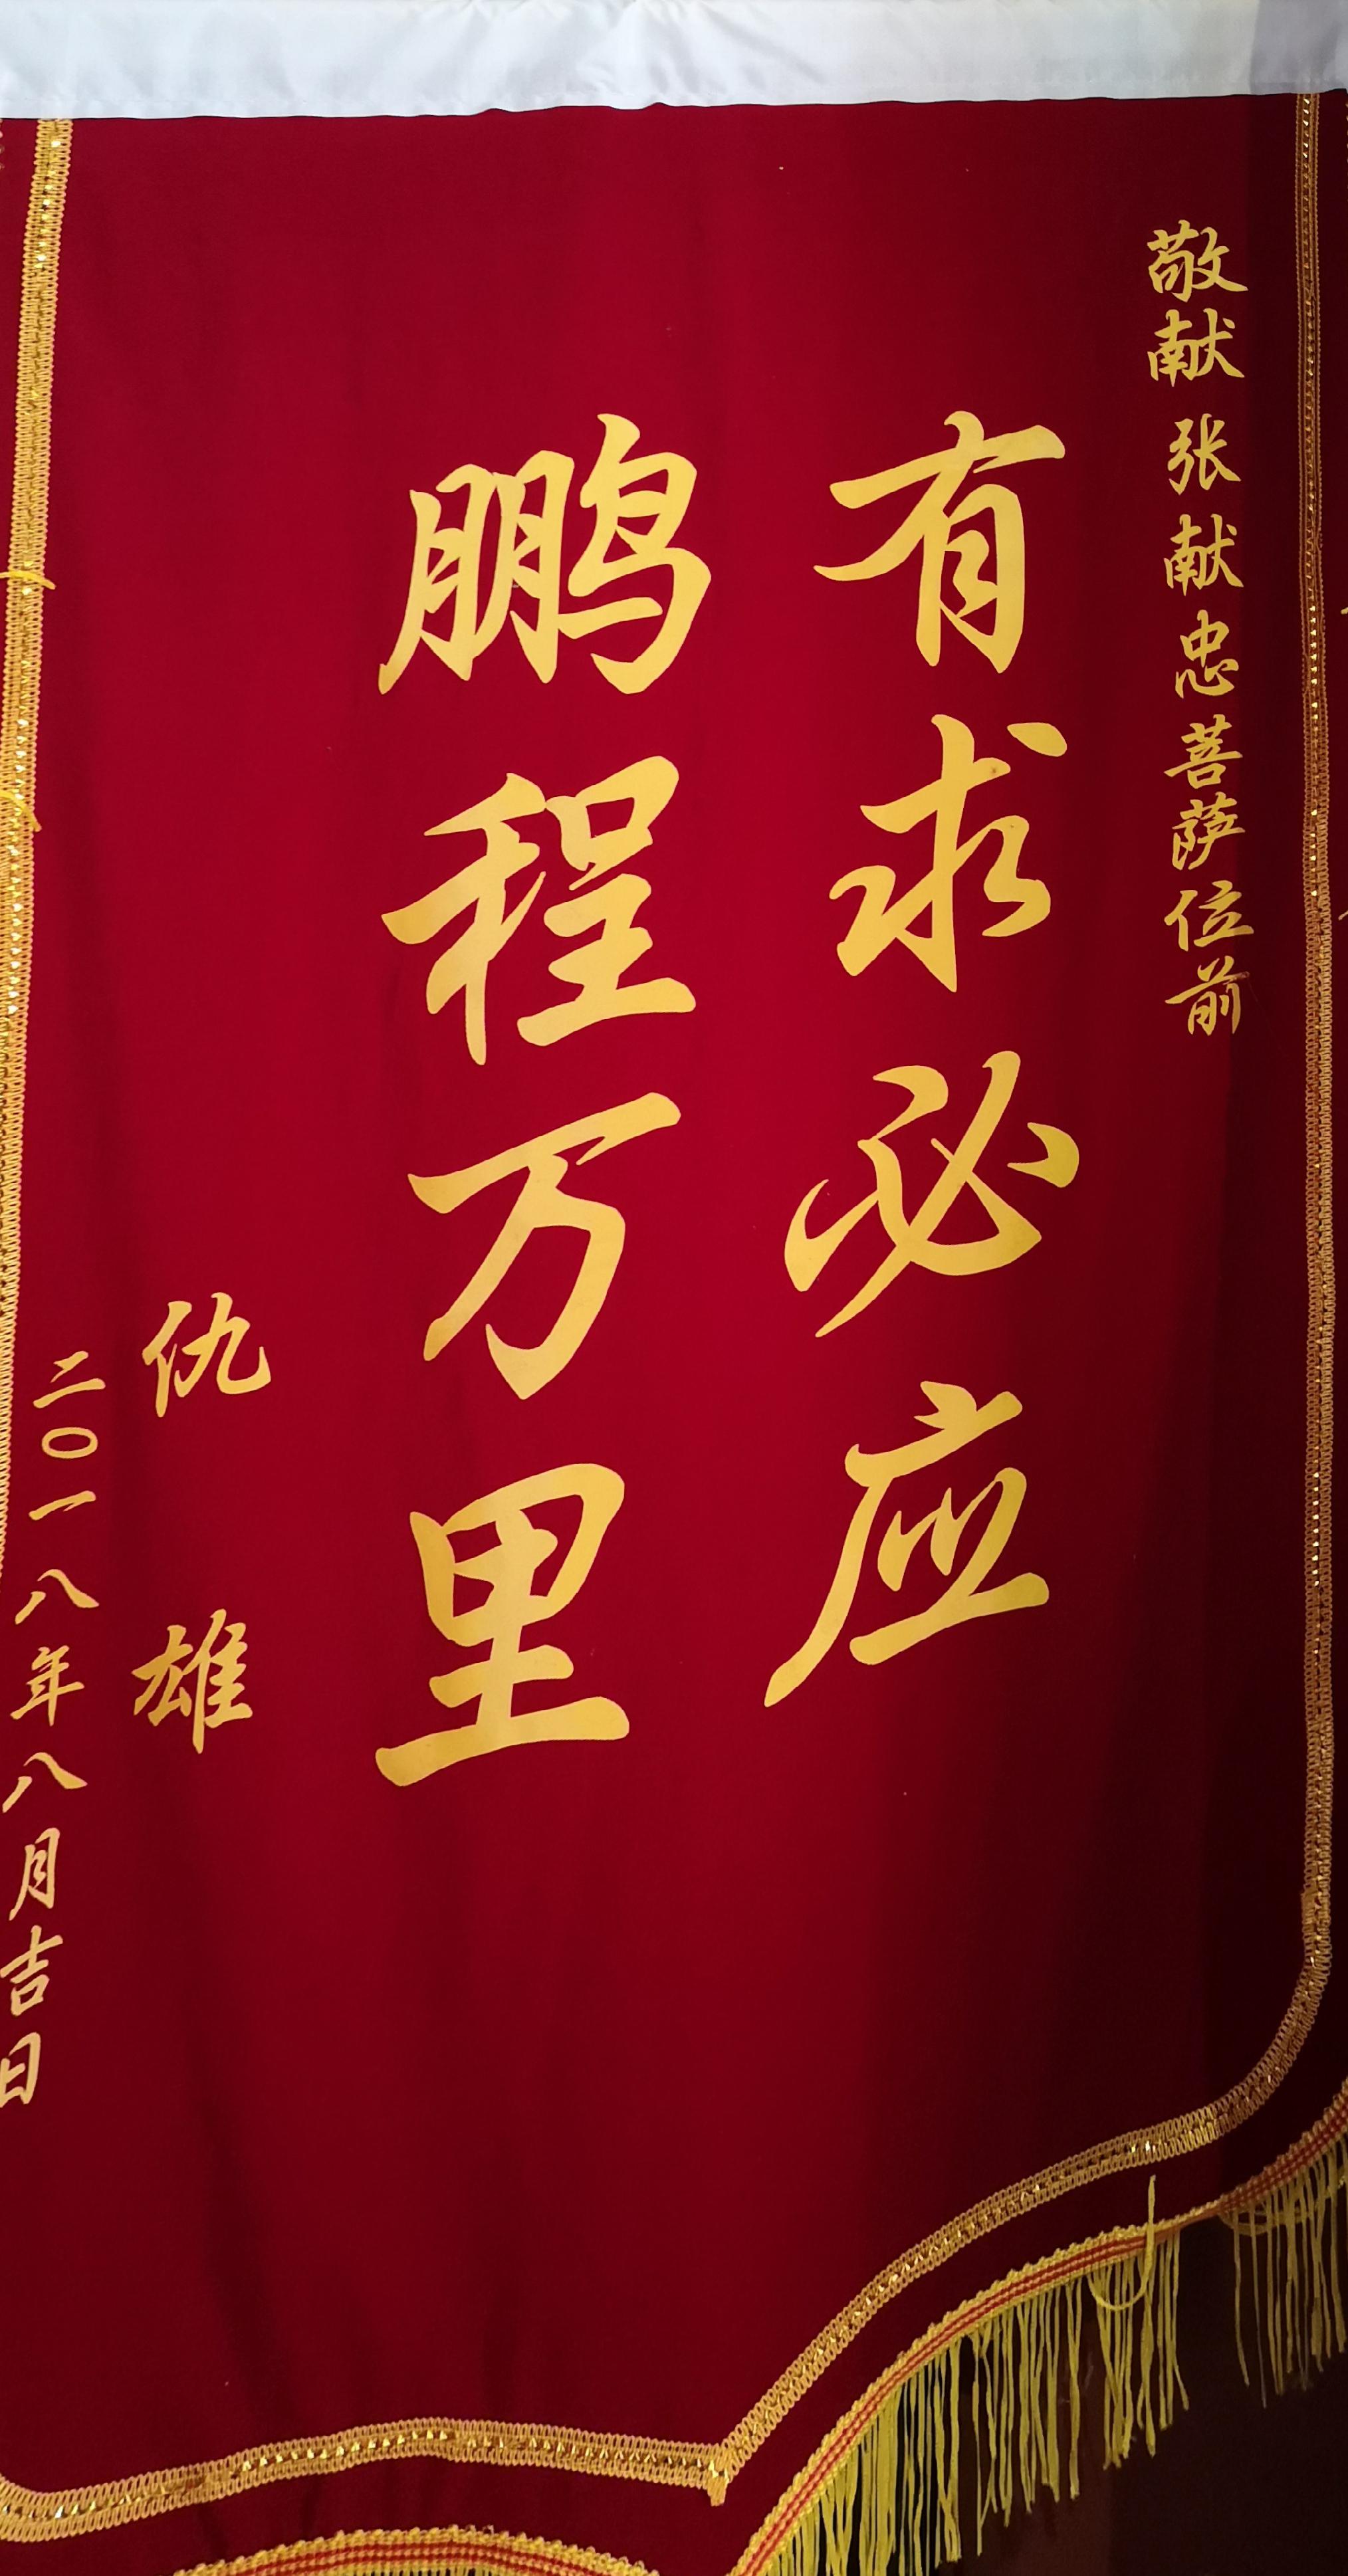 敬献张献忠菩萨位前
有求必应
鹏程万里
仇雄
二〇一八年八月吉日